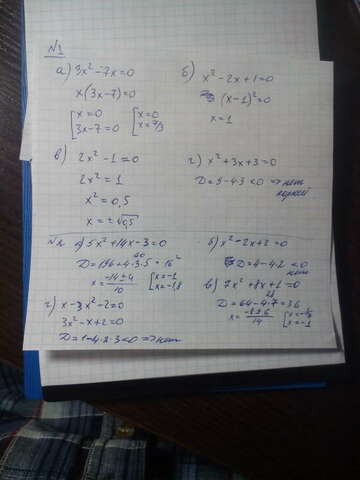 №1
а) 3x²-7x=0
x(3x-7)=0
[x=0
3x-7=0
[x=0
x=7/3
б) x²-2x+1=0
(x-1)²=0
x=1
в) 2x²-1=0
2x²=1
x²=0,5
x=±√0,5
г) x²+3x+3=0
D=9-4·3<0 ⇒ нет
корней
№2 а) 5x²+14x-3=0
60
D=196+4·3·5=16²
x=-14±4/10
[x=-1
x=-1,8
б) x²-2x+2=0
D=4-4·2<0
нет
в) 7x²+8x+1=0
28
D=64-4·7=36
x=-8±6/14
[x=-1/7
x=-1
г) x-3x²-2=0
3x²-x+2=0
D=1-4·2·3<0 ⇒ нет